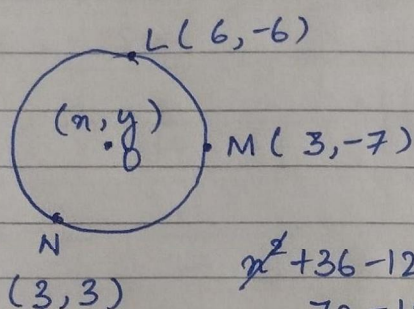 L(6,-6)
(x,y)
O
M(3,-7)
N
(3,3)
x²+36-12